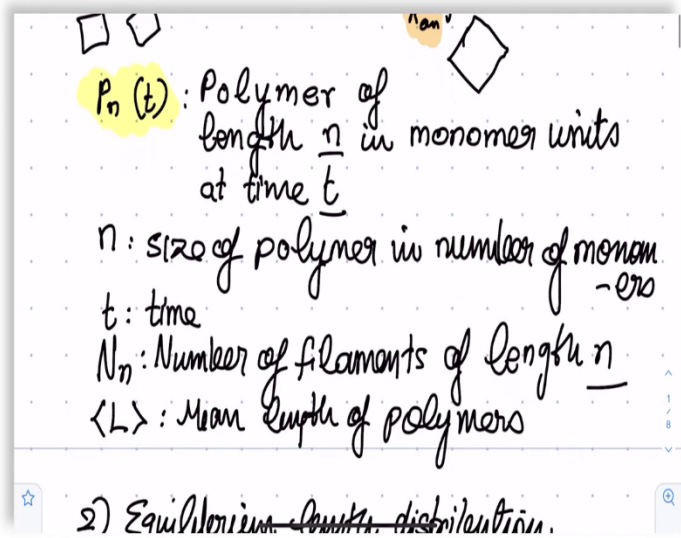 Kon
Pn (t) : Polymer of
length n in monomer units
at time t
n : size of polymer in number of monom
-ers
t : time
Nn : Number of filaments of length n
<L> : Mean length of polymers
1
/
8
2) Equilibrium length distribution.